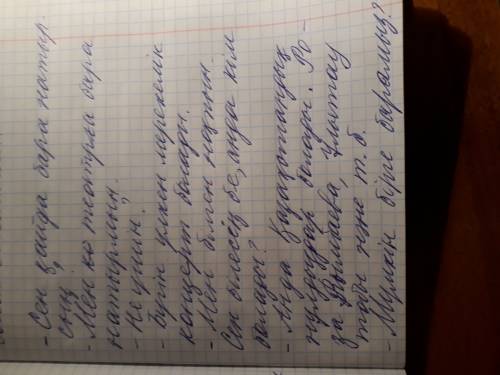 - Сен қайда бара жатыр.
сың?
- Мен ко театрға бара
жатырмын.
- Не үшін?
- Бүгін үлкен мерекелік
концерт болады.
- Мен білген жоқпын.
Сен білесің бе, анда кім
болады?
- Анда Қазақстандық
жұлдыздар болады. Ро-
за Рымбаева, Ұлытау
тобы және т.б.
- Мүмкін бірге барамыз?